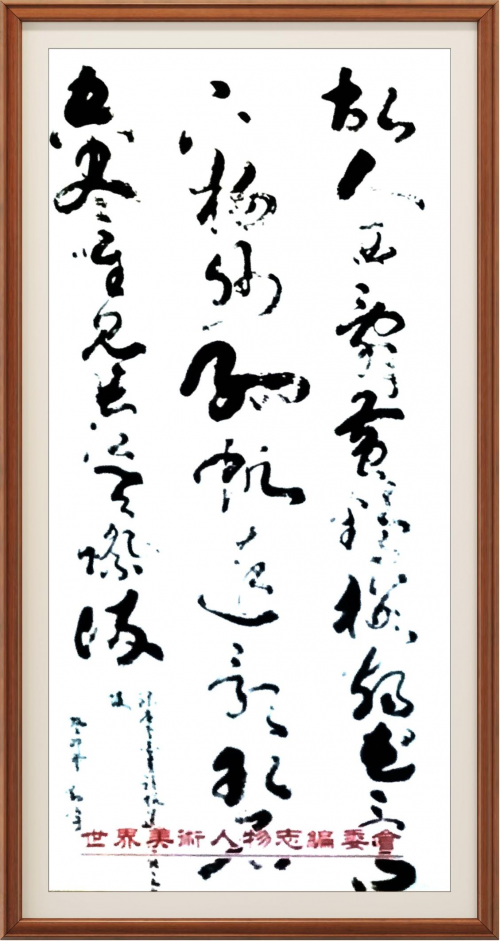 故人西辭黄鶴樓烟花三月
下揚州孤帆遠影碧
空尽唯見長江天際流
世界美術人物志編委會